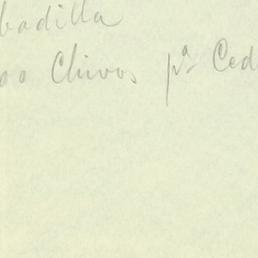 badilla
oo Chivos pª Ced